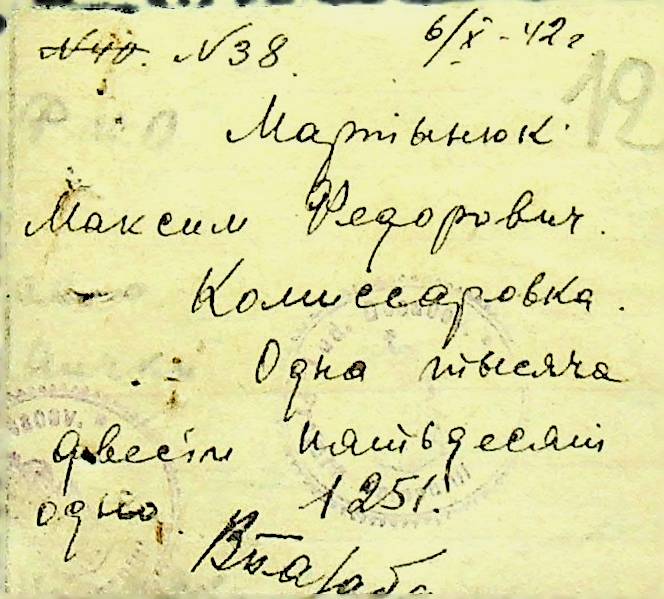 N40. N38. 6/X-42г
12
Мартынюк
Максим Федорович.
Комиссаровка.
Одна тысяча
двести пятьдесят
одно 1251.